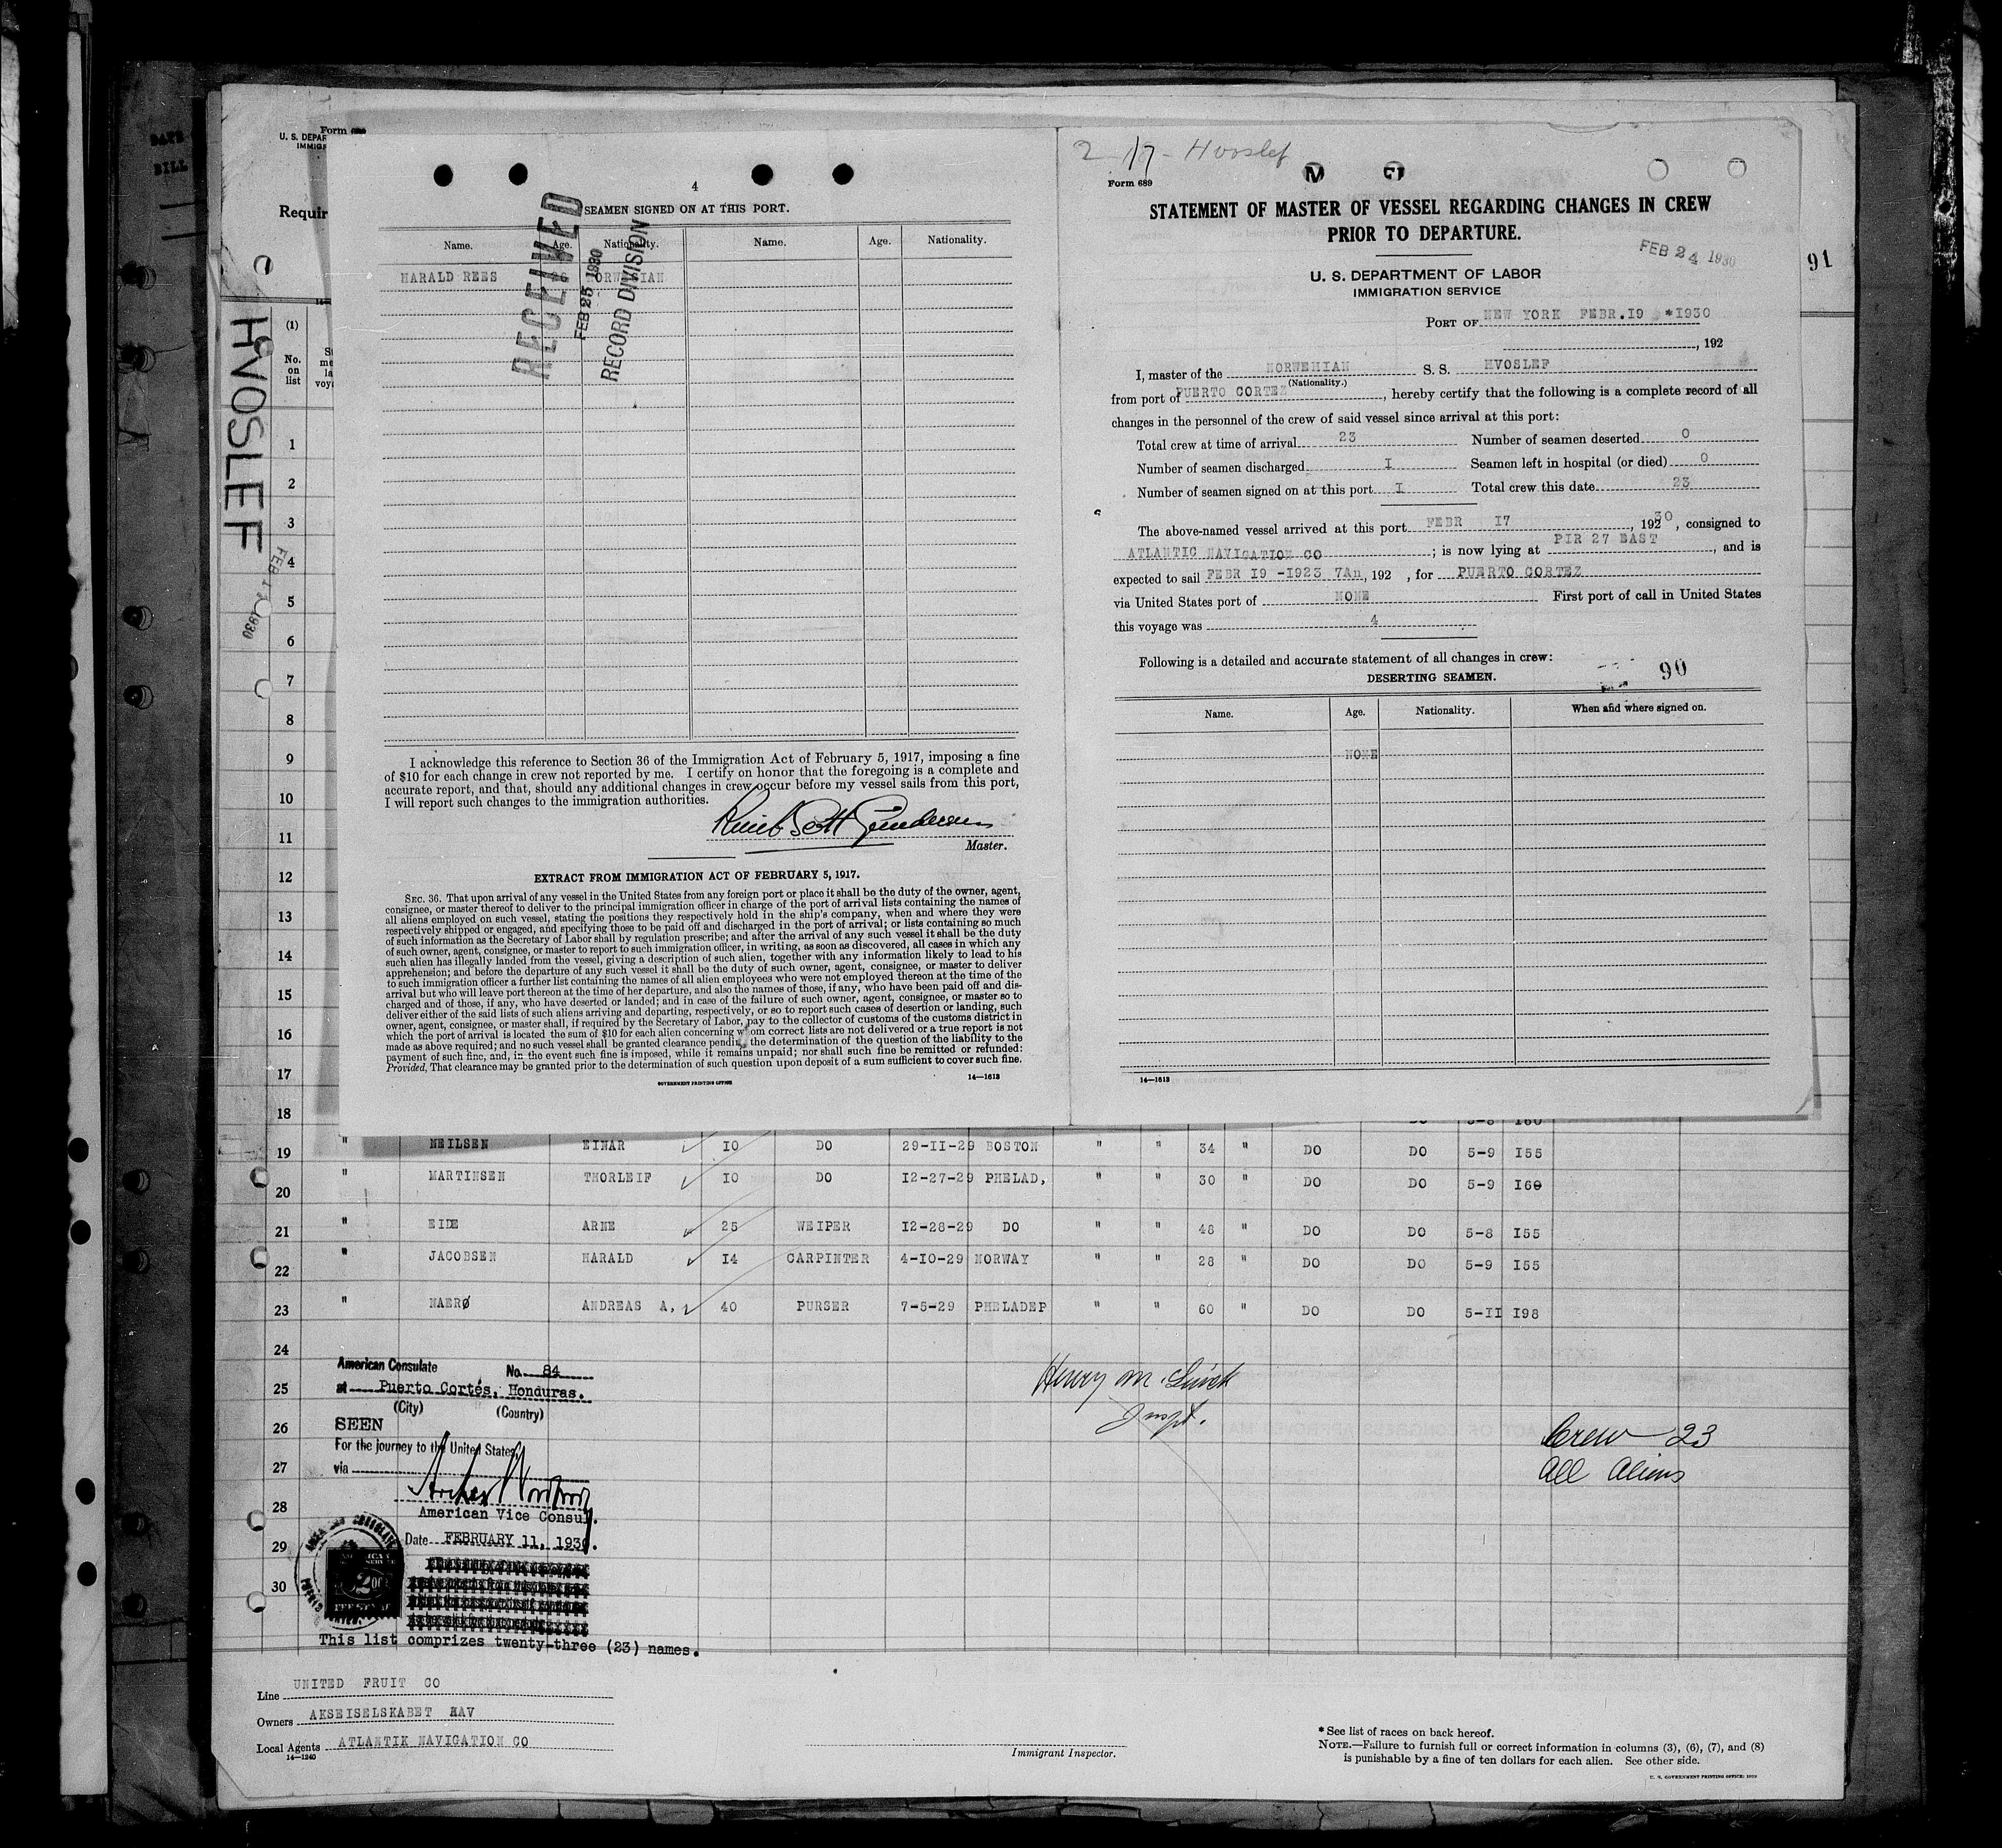 DATE
BILL
U. S. DEPAR
IMMIGR
Form
Requir
(1)
No.
on
list
HVOSLEF
FEB 1 1930
4
SEAMEN SIGNED ON AT THIS PORT.
Name. Age. Nationality. Name. Age. Nationality.
HARALD REES 26 NORWEGIAN
RECEIVED
FEB 25 1930
RECORD DIVISION
I acknowledge this reference to Section 36 of the Immigration Act of February 5, 1917, imposing a fine
of $10 for each change in crew not reported by me. I certify on honor that the foregoing is a complete and
accurate report, and that, should any additional changes in crew occur before my vessel sails from this port,
I will report such changes to the immigration authorities.
Scott Gundersen
Master.
EXTRACT FROM IMMIGRATION ACT OF FEBRUARY 5, 1917.
SEC. 36. That upon arrival of any vessel in the United States from any foreign port or place it shall be the duty of the owner, agent,
consignee, or master thereof to deliver to the principal immigration officer in charge of the port of arrival lists containing the names of
all aliens employed on such vessel, stating the positions they respectively hold in the ship's company, when and where they were
respectively shipped or engaged, and specifying those to be paid off and discharged in the port of arrival; or lists containing so much
of such information as the Secretary of Labor shall by regulation prescribe; and after the arrival of any such vessel it shall be the duty
of such owner, agent, consignee, or master to report to such immigration officer, in writing, as soon as discovered, all cases in which any
such alien has illegally landed from the vessel, giving a description of such alien, together with any information likely to lead to his
apprehension; and before the departure of any such vessel it shall be the duty of such owner, agent, consignee, or master to deliver
to such immigration officer a further list containing the names of all alien employees who were not employed thereon at the time of the
arrival but who will leave port thereon at the time of her departure, and also the names of those, if any, who have been paid off and dis-
charged and of those, if any, who have deserted or landed; and in case of the failure of such owner, agent, consignee, or master so to
deliver either of the said lists of such aliens arriving and departing, respectively, or so to report such cases of desertion or landing, such
owner, agent, consignee, or master shall, if required by the Secretary of Labor, pay to the collector of customs of the customs district in
which the port of arrival is located the sum of $10 for each alien concerning whom correct lists are not delivered or a true report is not
made as above required; and no such vessel shall be granted clearance pending the determination of the question of the liability to the
payment of such fine, and, in the event such fine is imposed, while it remains unpaid; nor shall such fine be remitted or refunded:
Provided, That clearance may be granted prior to the determination of such question upon deposit of a sum sufficient to cover such fine.
GOVERNMENT PRINTING OFFICE 14—1613
2/17 - Hvoslef
Form 689
STATEMENT OF MASTER OF VESSEL REGARDING CHANGES IN CREW
PRIOR TO DEPARTURE.
FEB 24 1930
91
U. S. DEPARTMENT OF LABOR
IMMIGRATION SERVICE
PORT OF NEW YORK FEBR.19 *1930
, 192
I, master of the NORWEHIAN S. S. HVOSLEF
(Nationality.)
from port of PUERTO CORTEZ, hereby certify that the following is a complete record of all
changes in the personnel of the crew of said vessel since arrival at this port:
Total crew at time of arrival 23 Number of seamen deserted 0
Number of seamen discharged I Seamen left in hospital (or died) 0
Number of seamen signed on at this port I Total crew this date 23
The above-named vessel arrived at this port FEBR 17, 19230, consigned to
ATLANTIC NAVIGATION CO; is now lying at PIR 27 EAST, and is
expected to sail FEBR 19 -1923 7An, 192 , for PUERTO CORTEZ
via United States port of NONE First port of call in United States
this voyage was 4
Following is a detailed and accurate statement of all changes in crew:
90
DESERTING SEAMEN.
Name. Age. Nationality. When and where signed on.
NONE
14—1613
1
2
3
4
5
6
7
8
9
10
11
12
13
14
15
16
17
18
19 " NEILSEN EINAR 10 DO 29-II-29 BOSTON " " 34 " DO DO 5-9 I55
20 " MARTINSEN THORLEIF IO DO I2-27-29 PHELAD, " " 30 " DO DO 5-9 I60
21 " EIDE ARNE 25 WEIPER I2-28-29 DO " " 48 " DO DO 5-8 I55
22 " JACOBSEN HARALD I4 CARPINTER 4-IO-29 NORWAY " " 28 " DO DO 5-9 I55
23 " NAERØ ANDREAS A, 40 PURSER 7-5-29 PHELADEP " " 60 " DO DO 5-II I98
24
25
26
27
28
29
30
American Consulate No. 84
at Puerto Cortés, Honduras.
(City) (Country)
SEEN
For the journey to the United States
via
American Vice Consul.
Date FEBRUARY 11, 1930.
This list comprizes twenty-three (23) names.
Henry M.
Inspt.
Crew 23
All Aliens
Line UNITED FRUIT CO
Owners AKSEISELSKABET HAV
Local Agents ATLANTIK NAVIGATION CO
14—1240
Immigrant Inspector.
* See list of races on back hereof.
NOTE.—Failure to furnish full or correct information in columns (3), (6), (7), and (8)
is punishable by a fine of ten dollars for each alien. See other side.
U. S. GOVERNMENT PRINTING OFFICE: 1929